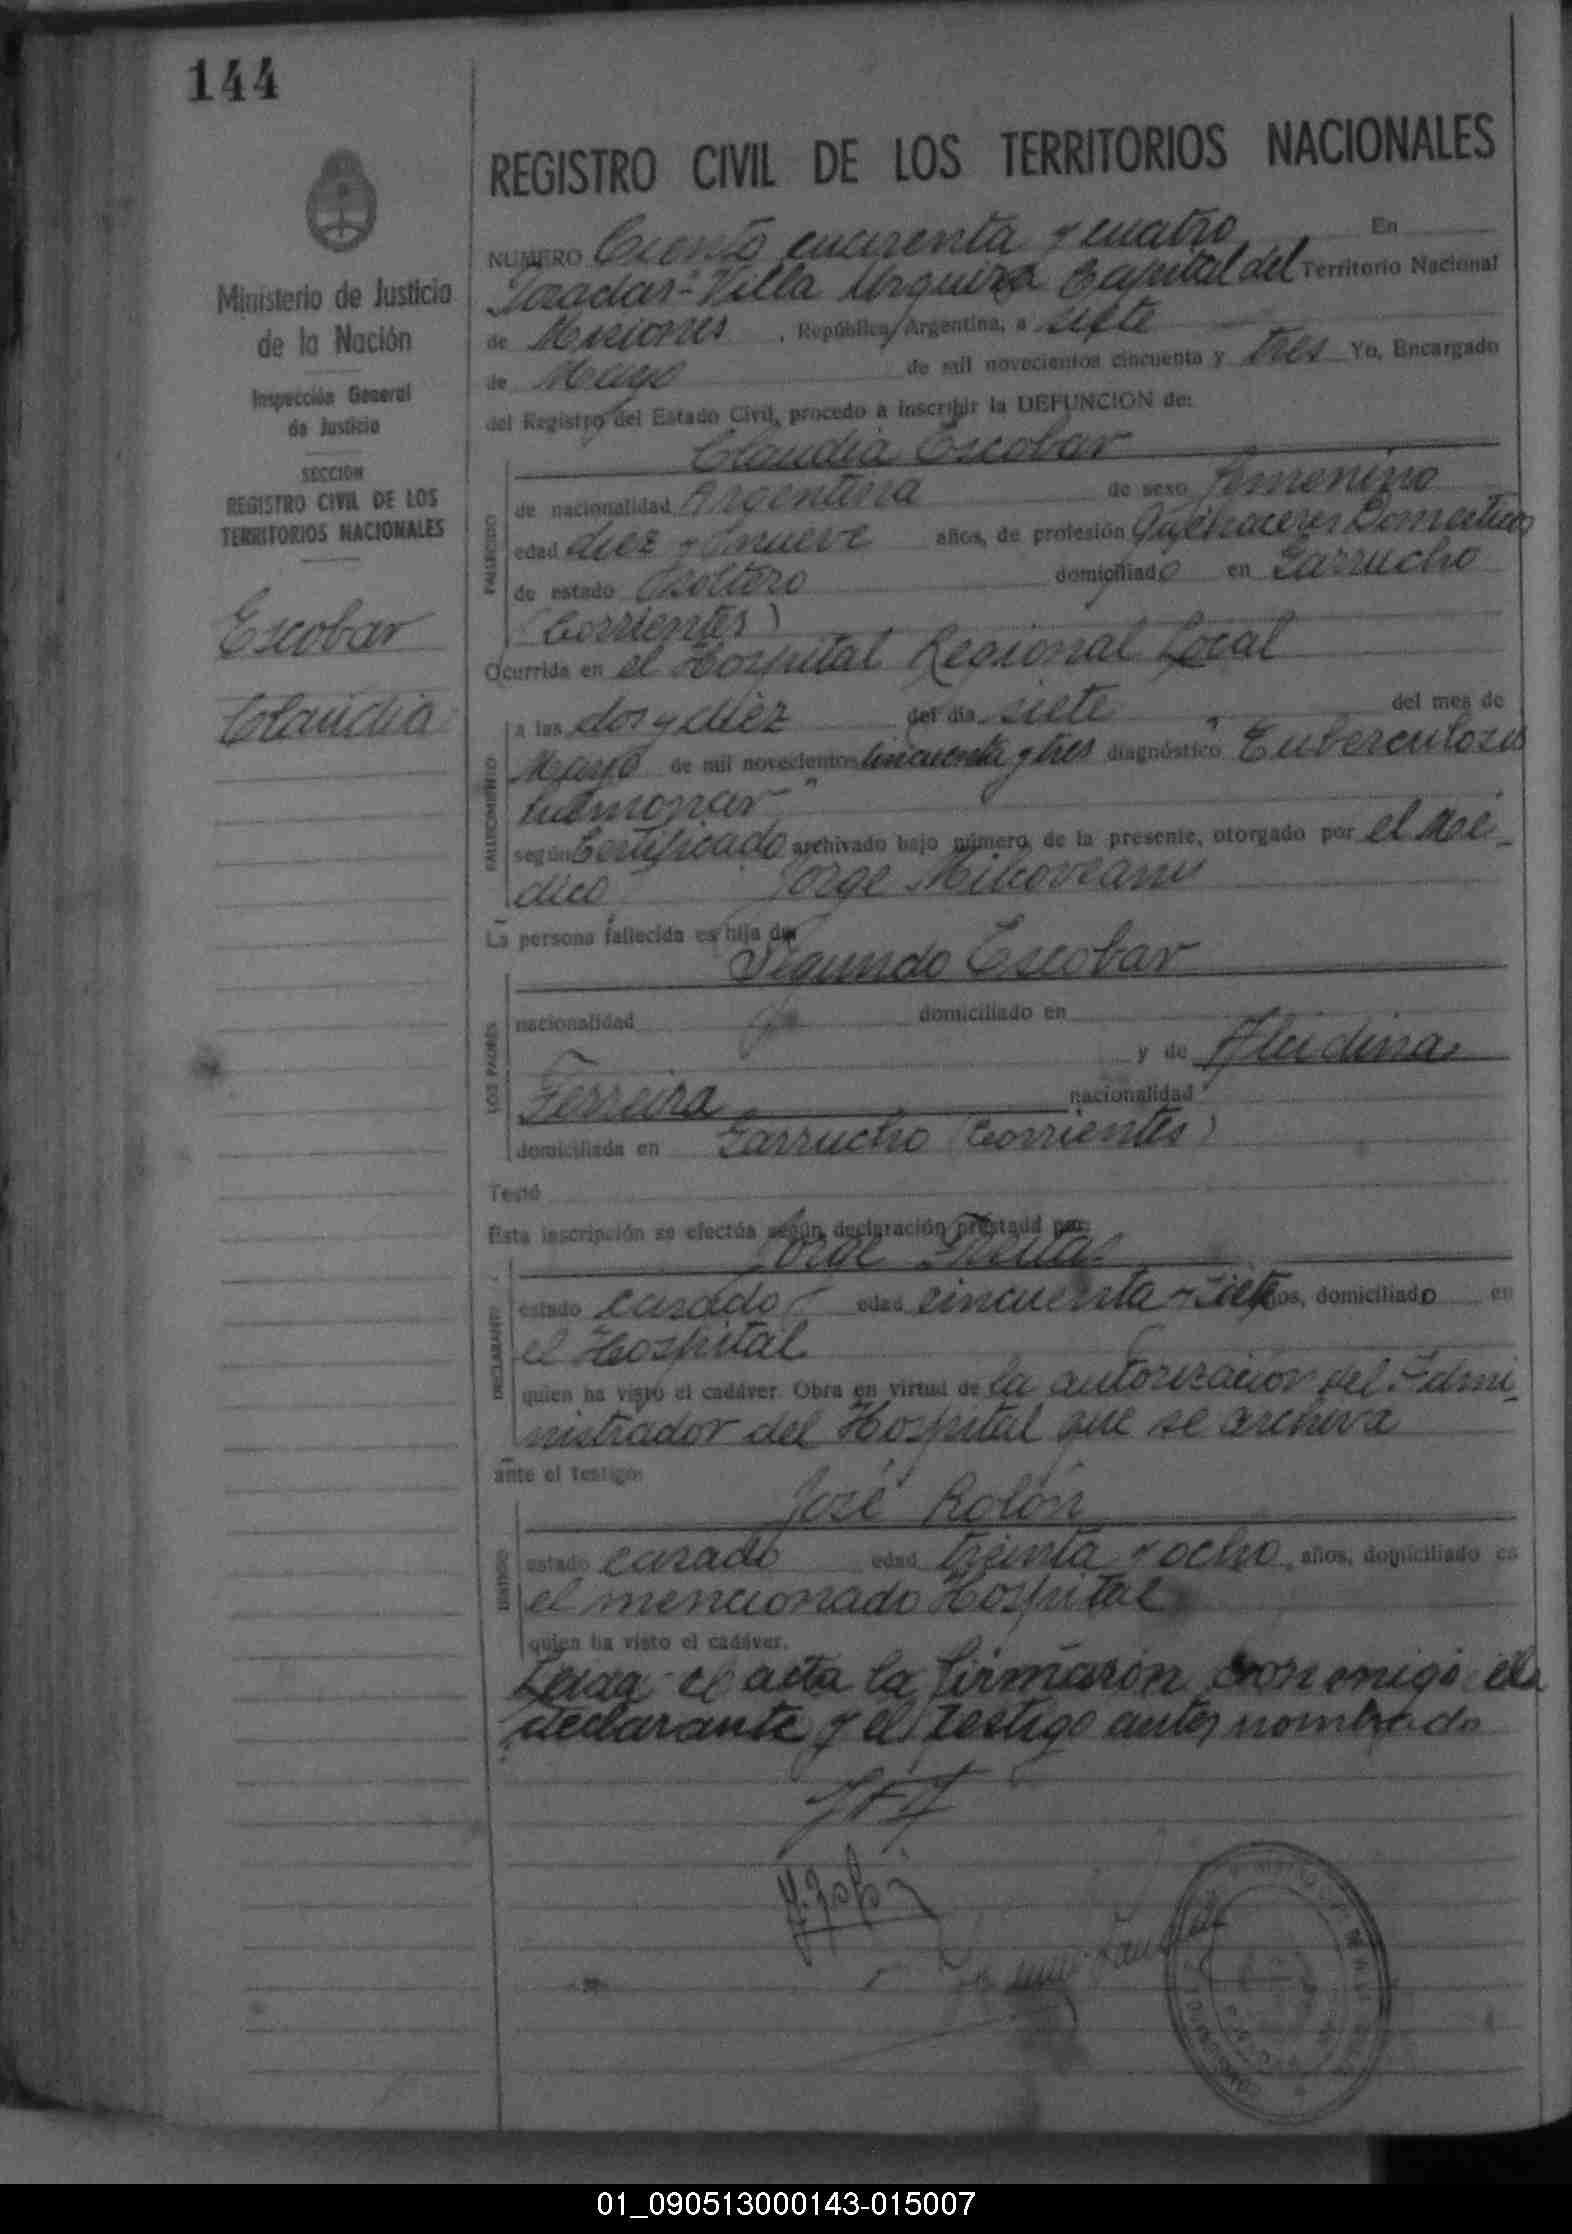 144
Ministerio de Justicia
de la Nación
Inspección General
de Justicia
SECCION
REGISTRO CIVIL DE LOS
TERRITORIOS NACIONALES
Escobar
Claudia
REGISTRO CIVIL DE LOS TERRITORIOS NACIONALES
NUMERO Ciento cuarenta y cuatro En
Posadas-Villa Urquiza Capital del Territorio Nacional
de Misiones, República Argentina, a siete
de Mayo de mil novecientos cincuenta y tres Yo, Encargado
del Registro del Estado Civil, procedo a inscribir la DEFUNCION de:
Claudia Escobar
FALLECIDO
de nacionalidad Argentina de sexo Femenino
edad diez y nueve años, de profesión Quehaceres Domesticos
de estado Soltero domiciliado en Garruchо
(Corrientes)
Ocurrida en el Hospital Regional Local
FALLECIMIENTO
a las dos y diez del día siete del mes de
Mayo de mil novecientos cincuenta y tres diagnóstico "Tuberculosis
pulmonar"
según Certificado archivado bajo número de la presente, otorgado por el Mé-
dico Jorge
La persona fallecida es hija de:
Segundo Escobar
LOS PADRES
nacionalidad domiciliado en
y de
Ferreira nacionalidad
domiciliada en Garrucho (Corrientes)
Testó
Esta inscripción se efectúa según declaración prestada por:
Jorge Freitas
DECLARANTE
estado casado edad cincuenta y siete años, domiciliado en
el Hospital
quien ha visto el cadáver. Obra en virtud de la autorización del Admi-
nistrador del Hospital que se archiva
ante el testigo:
José Rolón
TESTIGO
estado casado edad treinta y ocho años, domiciliado en
el mencionado Hospital
quien ha visto el cadáver.
Leida el acta la firmaron conmigo el
declarante y el testigo antes nombrado
01_090513000143-015007